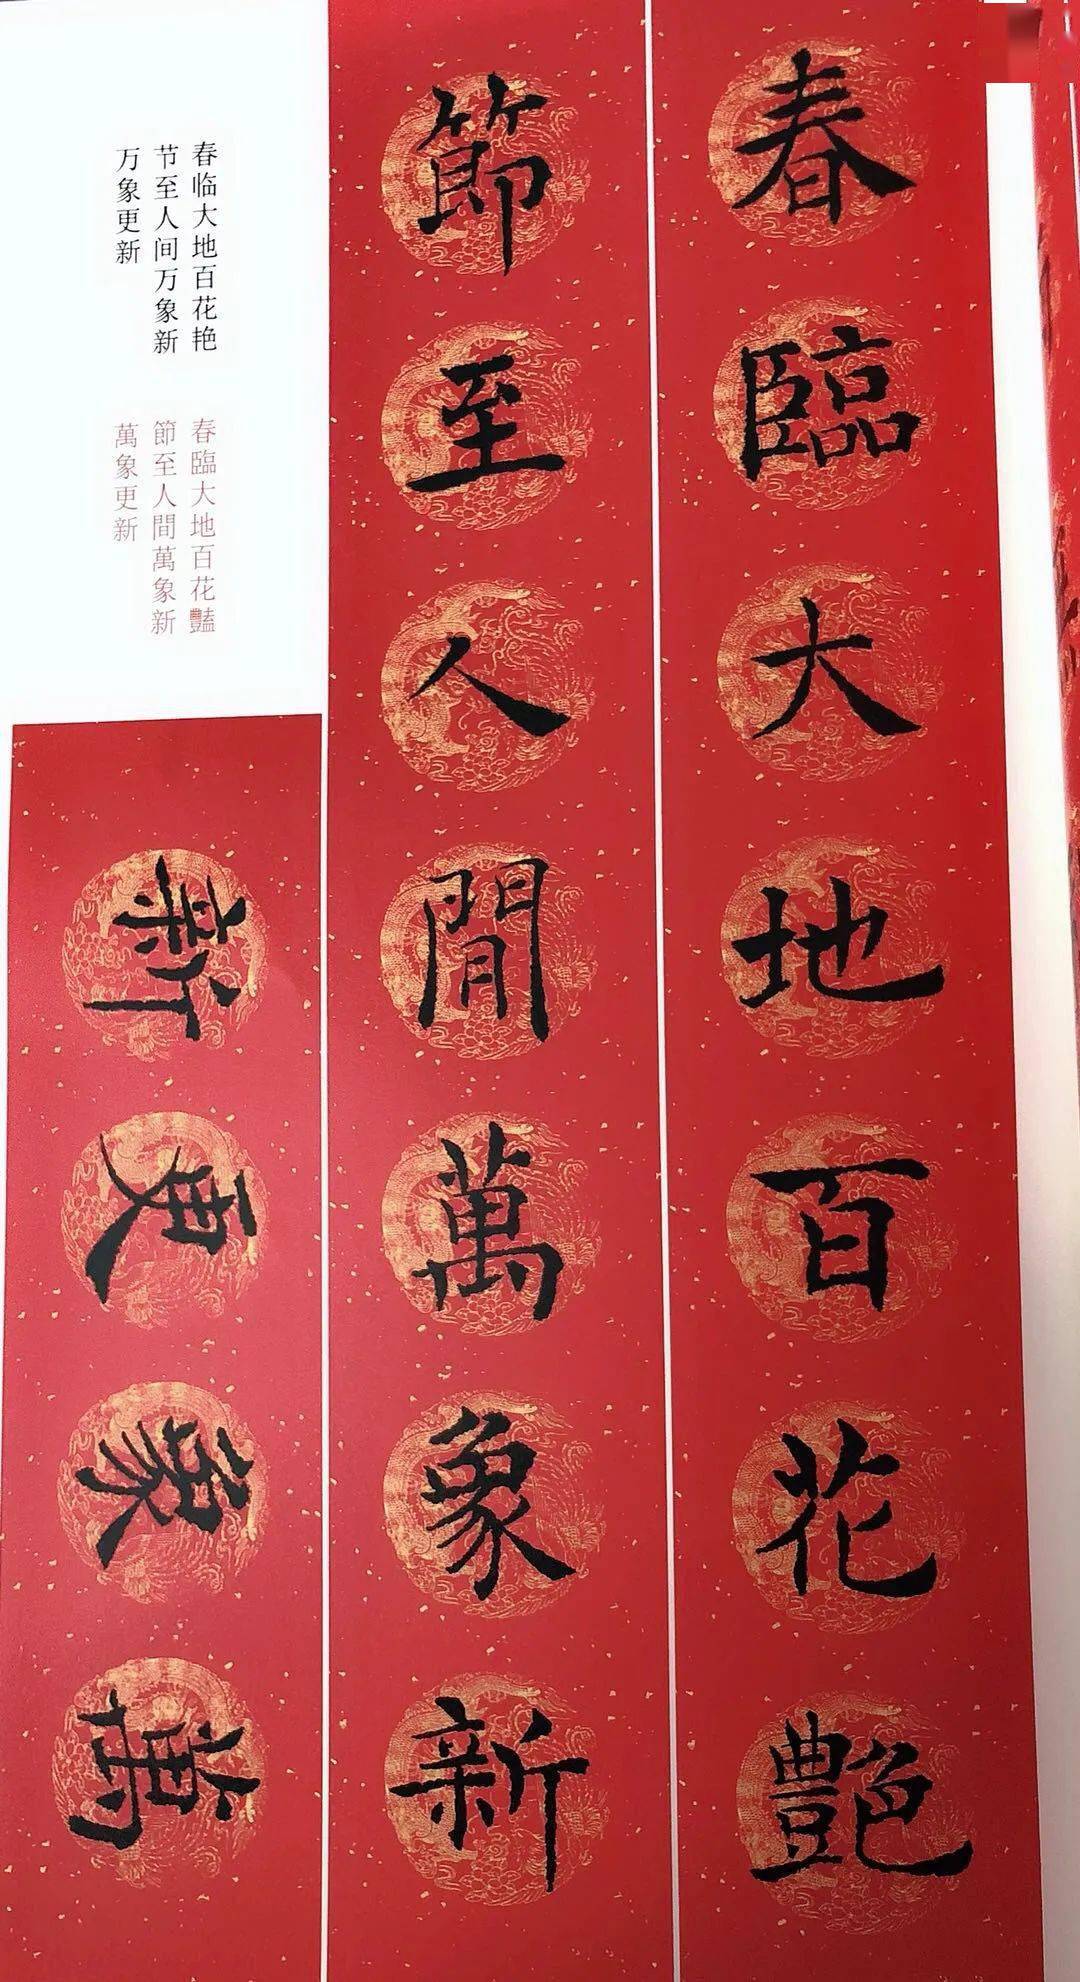 春臨大地百花艶
節至人間萬象新
萬象更新
春临大地百花艳
节至人间万象新
万象更新
春臨大地百花豔
節至人間萬象新
萬象更新